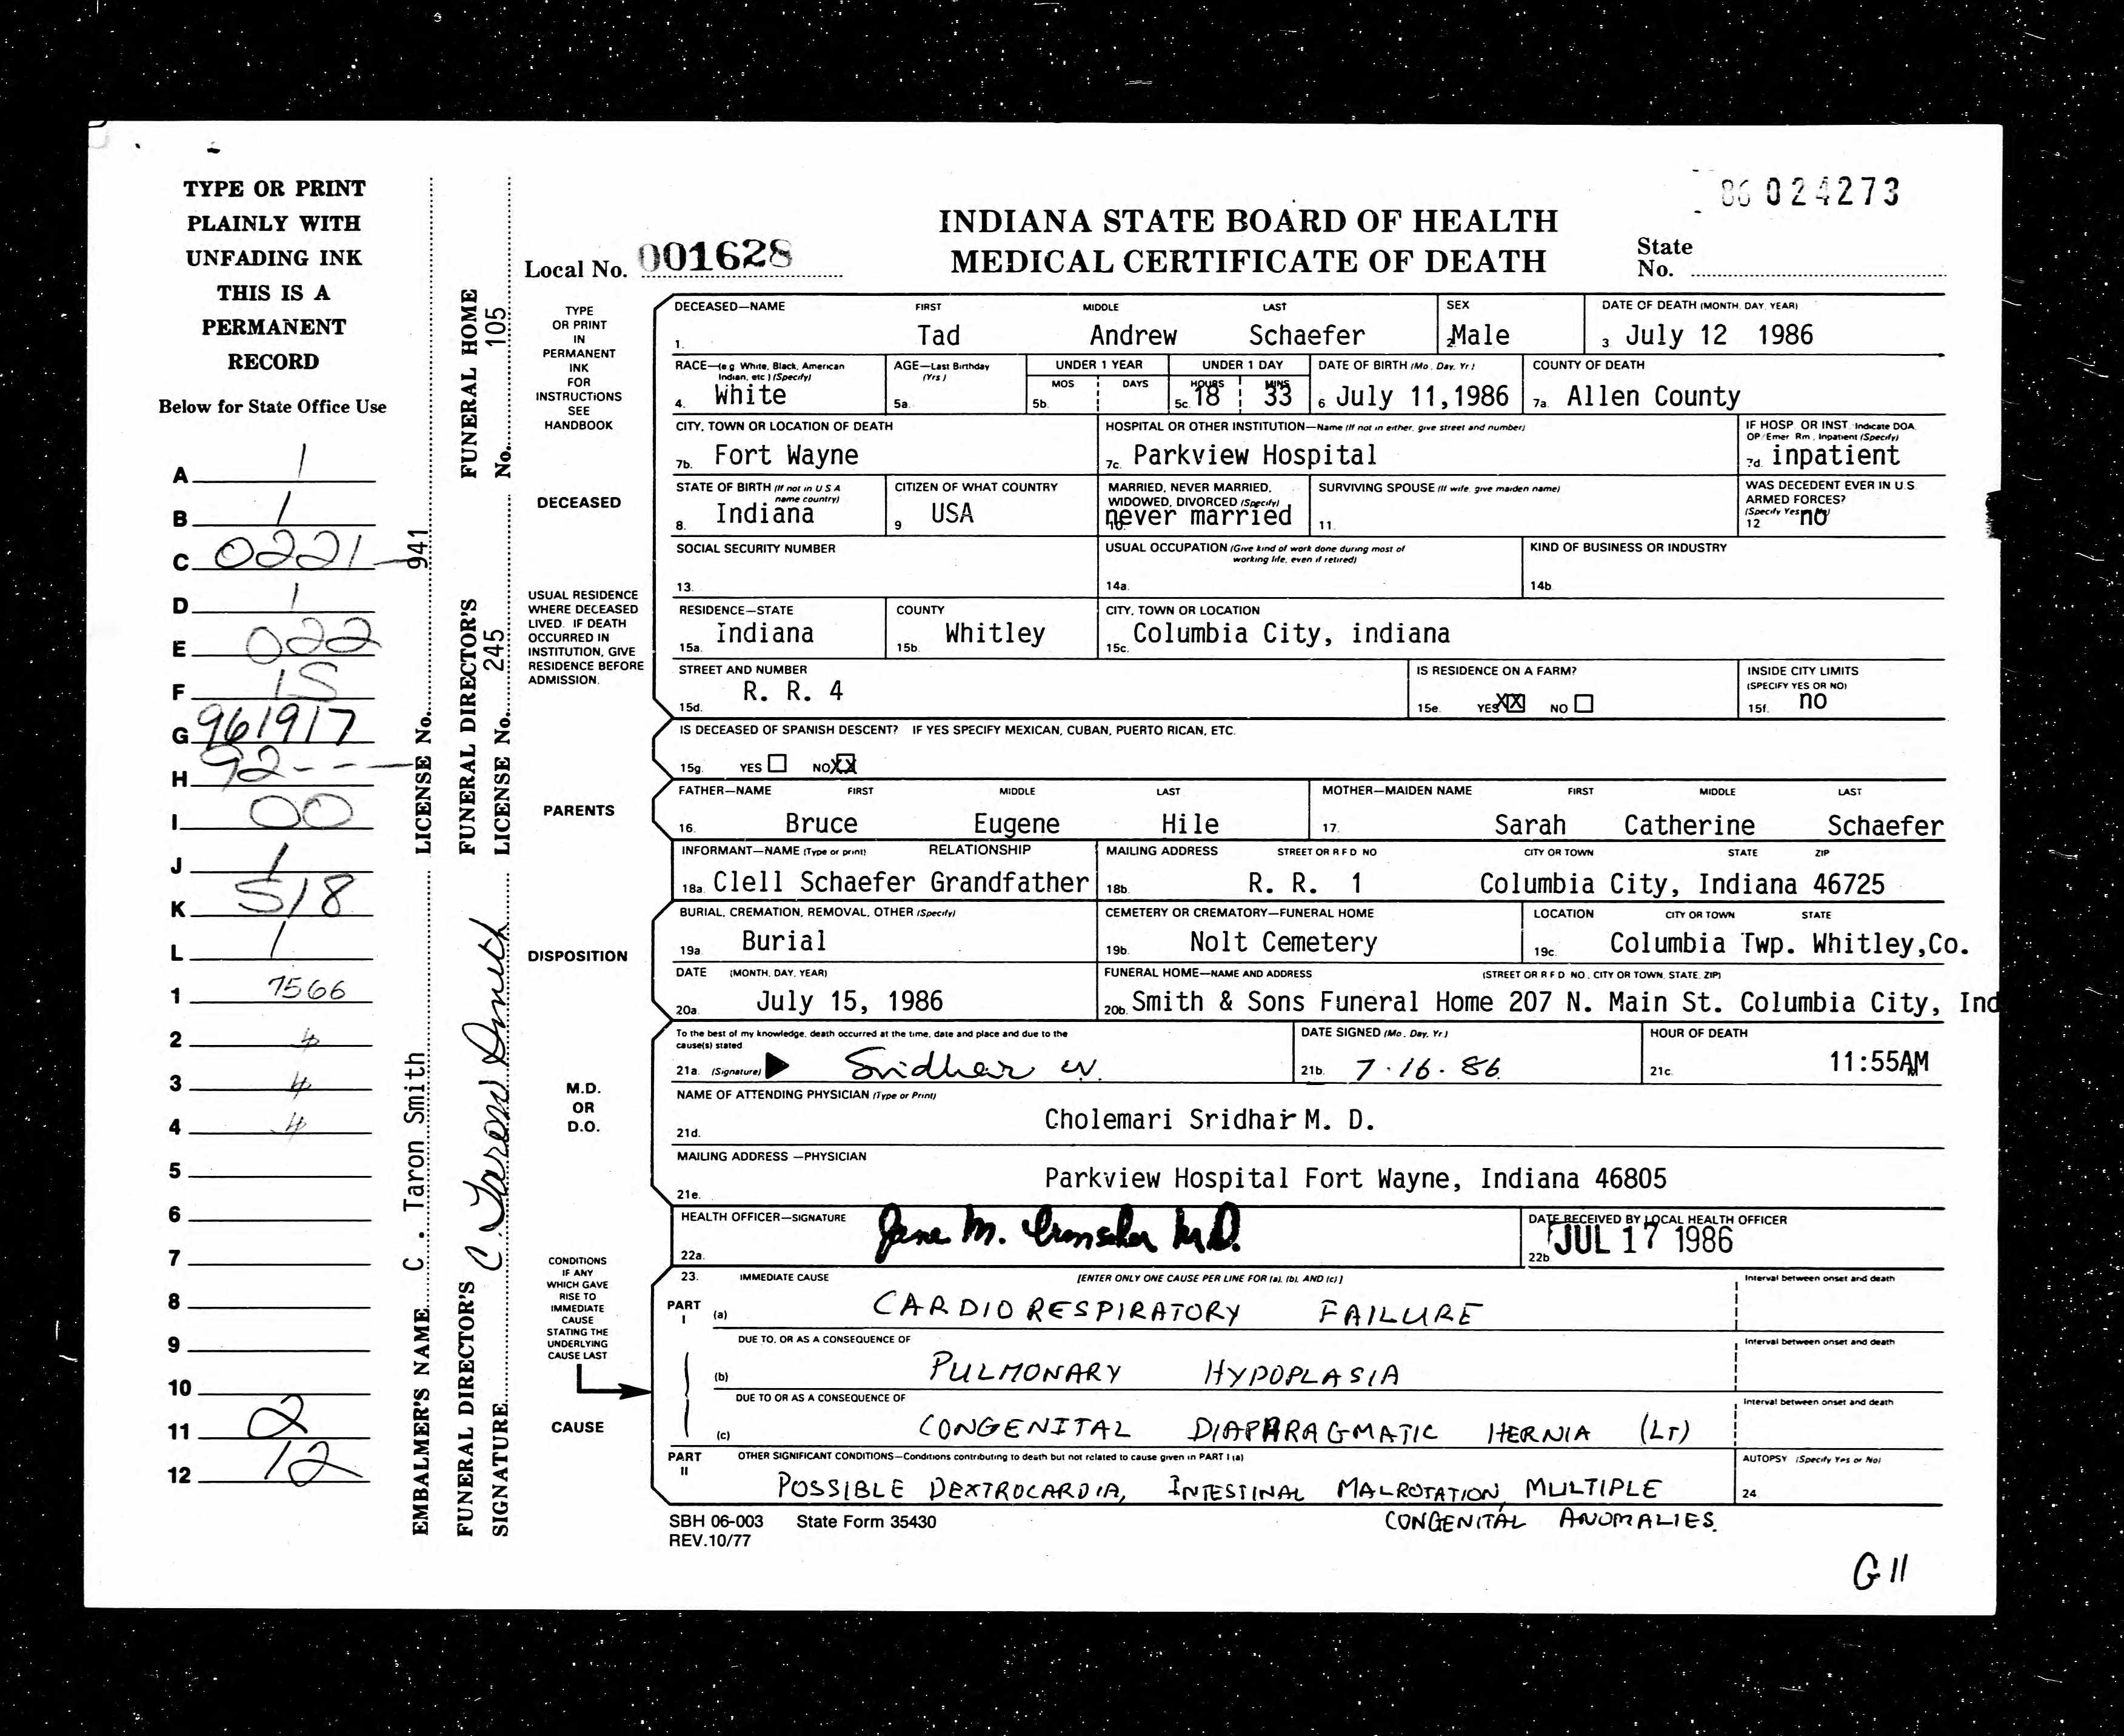 TYPE OR PRINT
PLAINLY WITH
UNFADING INK
THIS IS A
PERMANENT
RECORD
Below for State Office Use
A 1
B 1
C 0221
D 1
E 022
F 15
G 961917
H 92---
I 00
J 1
K 518
L 1
1 7566
2 4
3 4
4 4
5
6
7
8
9
10
11 2
12 12
EMBALMER'S NAME C. Taron Smith LICENSE No. 941
FUNERAL DIRECTOR'S FUNERAL DIRECTOR'S FUNERAL HOME
SIGNATURE C. Taron Smith LICENSE No. 245 No. 105
86 024273
INDIANA STATE BOARD OF HEALTH
Local No. 001628 MEDICAL CERTIFICATE OF DEATH State
No.
TYPE
OR PRINT
IN
PERMANENT
INK
FOR
INSTRUCTIONS
SEE
HANDBOOK
DECEASED
DECEASED—NAME FIRST MIDDLE LAST SEX DATE OF DEATH (MONTH, DAY, YEAR)
1. Tad Andrew Schaefer 2. Male 3. July 12 1986
RACE—(e.g. White, Black, American AGE—Last Birthday UNDER 1 YEAR UNDER 1 DAY DATE OF BIRTH (Mo., Day, Yr.) COUNTY OF DEATH
Indian, etc.) (Specify) (Yrs.) MOS DAYS HOURS MINS
4. White 5a. 5b. 5c. 18 33 6 July 11,1986 7a. Allen County
CITY, TOWN OR LOCATION OF DEATH HOSPITAL OR OTHER INSTITUTION—Name (If not in either, give street and number) IF HOSP. OR INST. Indicate DOA,
OP/Emer. Rm., Inpatient (Specify)
7b. Fort Wayne 7c. Parkview Hospital 7d. inpatient
STATE OF BIRTH (If not in U.S.A. name country) CITIZEN OF WHAT COUNTRY MARRIED, NEVER MARRIED, WIDOWED, DIVORCED (Specify) SURVIVING SPOUSE (If wife, give maiden name) WAS DECEDENT EVER IN U.S. ARMED FORCES? (Specify Yes or No)
8. Indiana 9 USA 10. never married 11. 12 no
SOCIAL SECURITY NUMBER USUAL OCCUPATION (Give kind of work done during most of working life, even if retired) KIND OF BUSINESS OR INDUSTRY
13. 14a. 14b.
USUAL RESIDENCE
WHERE DECEASED
LIVED. IF DEATH
OCCURRED IN
INSTITUTION, GIVE
RESIDENCE BEFORE
ADMISSION.
RESIDENCE—STATE COUNTY CITY, TOWN OR LOCATION
15a. Indiana 15b. Whitley 15c. Columbia City, indiana
STREET AND NUMBER IS RESIDENCE ON A FARM? INSIDE CITY LIMITS
(SPECIFY YES OR NO)
15d. R. R. 4 15e. YES XX NO 15f. no
IS DECEASED OF SPANISH DESCENT? IF YES SPECIFY MEXICAN, CUBAN, PUERTO RICAN, ETC.
15g. YES NO XX
PARENTS
FATHER—NAME FIRST MIDDLE LAST MOTHER—MAIDEN NAME FIRST MIDDLE LAST
16. Bruce Eugene Hile 17. Sarah Catherine Schaefer
INFORMANT—NAME (Type or print) RELATIONSHIP MAILING ADDRESS STREET OR R F D NO CITY OR TOWN STATE ZIP
18a. Clell Schaefer Grandfather 18b. R. R. 1 Columbia City, Indiana 46725
DISPOSITION
BURIAL, CREMATION, REMOVAL, OTHER (Specify) CEMETERY OR CREMATORY—FUNERAL HOME LOCATION CITY OR TOWN STATE
19a. Burial 19b. Nolt Cemetery 19c. Columbia Twp. Whitley,Co.
DATE (MONTH, DAY, YEAR) FUNERAL HOME—NAME AND ADDRESS (STREET OR R F D NO., CITY OR TOWN, STATE, ZIP)
20a. July 15, 1986 20b. Smith & Sons Funeral Home 207 N. Main St. Columbia City, Ind
M.D.
OR
D.O.
To the best of my knowledge, death occurred at the time, date and place and due to the DATE SIGNED (Mo., Day, Yr.) HOUR OF DEATH
cause(s) stated
21a. (Signature) Sridhar 21b. 7.16.86 21c. 11:55AM
NAME OF ATTENDING PHYSICIAN (Type or Print)
21d. Cholemari Sridhar M. D.
MAILING ADDRESS —PHYSICIAN
21e. Parkview Hospital Fort Wayne, Indiana 46805
HEALTH OFFICER—SIGNATURE DATE RECEIVED BY LOCAL HEALTH OFFICER
22a. Jane M. Irmscher M.D. 22b JUL 17 1986
CONDITIONS
IF ANY
WHICH GAVE
RISE TO
IMMEDIATE
CAUSE
STATING THE
UNDERLYING
CAUSE LAST
CAUSE
23. IMMEDIATE CAUSE [ENTER ONLY ONE CAUSE PER LINE FOR (a), (b), AND (c)] Interval between onset and death
PART I (a) CARDIO RESPIRATORY FAILURE
DUE TO, OR AS A CONSEQUENCE OF Interval between onset and death
(b) PULMONARY HYPOPLASIA
DUE TO OR AS A CONSEQUENCE OF Interval between onset and death
(c) CONGENITAL DIAPHRAGMATIC HERNIA (LT)
PART II OTHER SIGNIFICANT CONDITIONS—Conditions contributing to death but not related to cause given in PART I (a) AUTOPSY (Specify Yes or No)
POSSIBLE DEXTROCARDIA, INTESTINAL MALROTATION, MULTIPLE 24.
SBH 06-003 State Form 35430 CONGENITAL ANOMALIES.
REV.10/77
G11